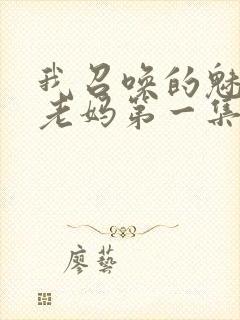 我召唤的魅
老妈第一集
廖藝